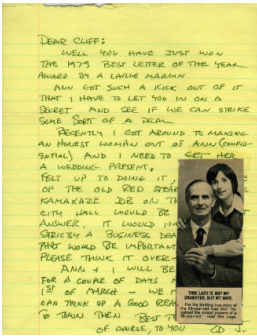 DEAR CLIFF:
WELL YOU HAVE JUST WON
THE 1979 BEST LETTER OF THE YEAR
AWARD BY A LARGE MARGIN.
ANN GOT SUCH A KICK OUT OF IT
THAT I HAVE TO LET YOU IN ON A
SECRET AND SEE IF WE CAN STRIKE
SOME SORT OF A DEAL
RECENTLY I GOT AROUND TO MAKING
AN HONEST WOMAN OUT OF ANN (CONFID-
ENTIAL) AND I NEED TO GET HER
A WEDDING PRESENT.
FELT UP TO DOING IT
OF THE OLD RED STEA
KAMAKAZE JOB ON TH
CITY HALL WOULD BE
ANSWER. IT WOULD HA
STRICTLY A BUSINESS DEA
PART WOULD BE IMPORTAN
PLEASE THINK IT OVER-
ANN + WILL BE
FOR A COUPLE OF DAYS
1ST OF MARCH - WE
CAN THINK UP A GOOD REA
TO TOWN THEN BEST T
OF COURSE, TO YOU ED J.
THIS LADY IS NOT MY
DAUGHTER, BUT MY WIFE.